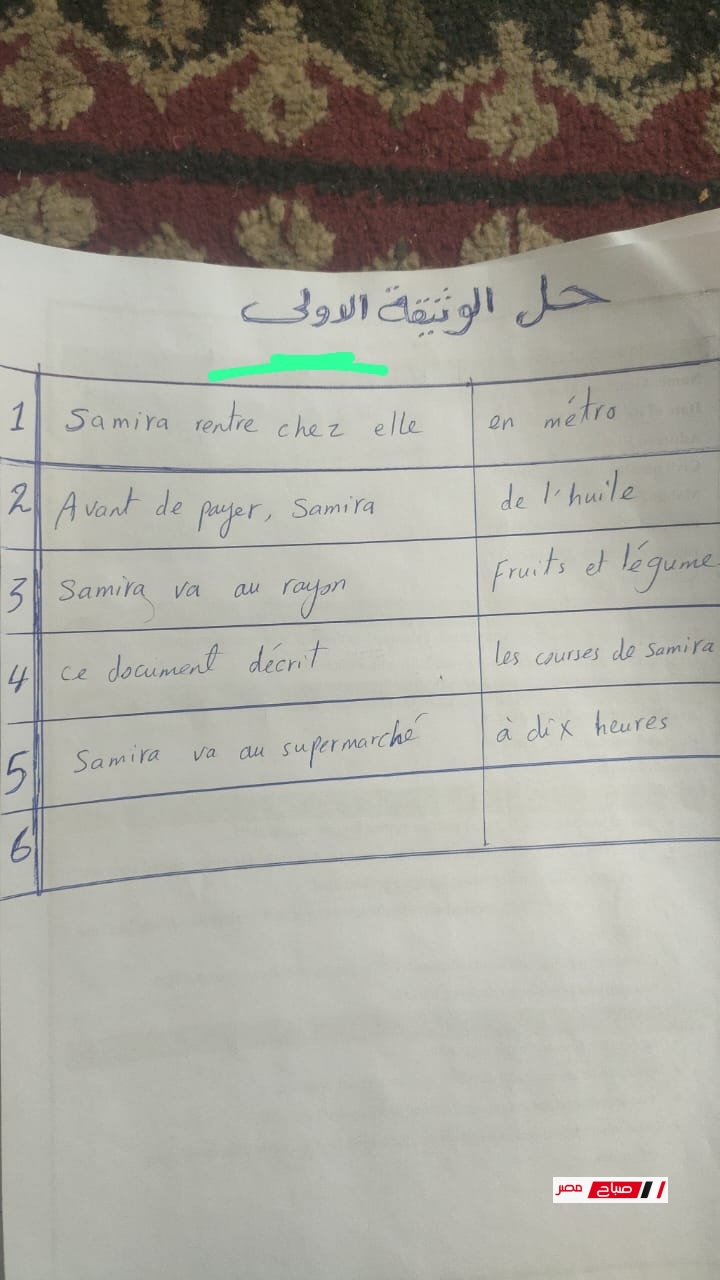 حل الوثيقة الاولى
1 Samira rentre chez elle en métro
2 Avant de payer, Samira de l'huile
3 Samira va au rayon Fruits et légume
4 ce document décrit les courses de Samira
5 Samira va au supermarché à dix heures
6
صباح مصر